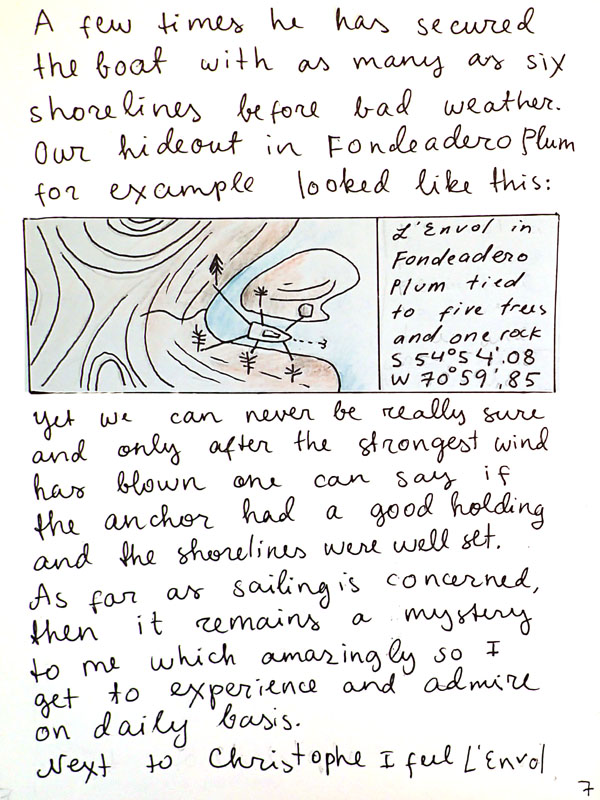 A few times he has secured
the boat with as many as six
shorelines before bad weather.
Our hideout in Fondeadero Plum
for example looked like this:
L'Envol in
Fondeadero
Plum tied
to five trees
and one rock
S 54°54'.08
W 70°59'.85
Yet we can never be really sure
and only after the strongest wind
has blown one can say if
the anchor had a good holding
and the shorelines were well set.
As far as sailing is concerned,
then it remains a mystery
to me which amazingly so I
get to experience and admire
on daily basis.
Next to Christophe I feel L'Envol
7